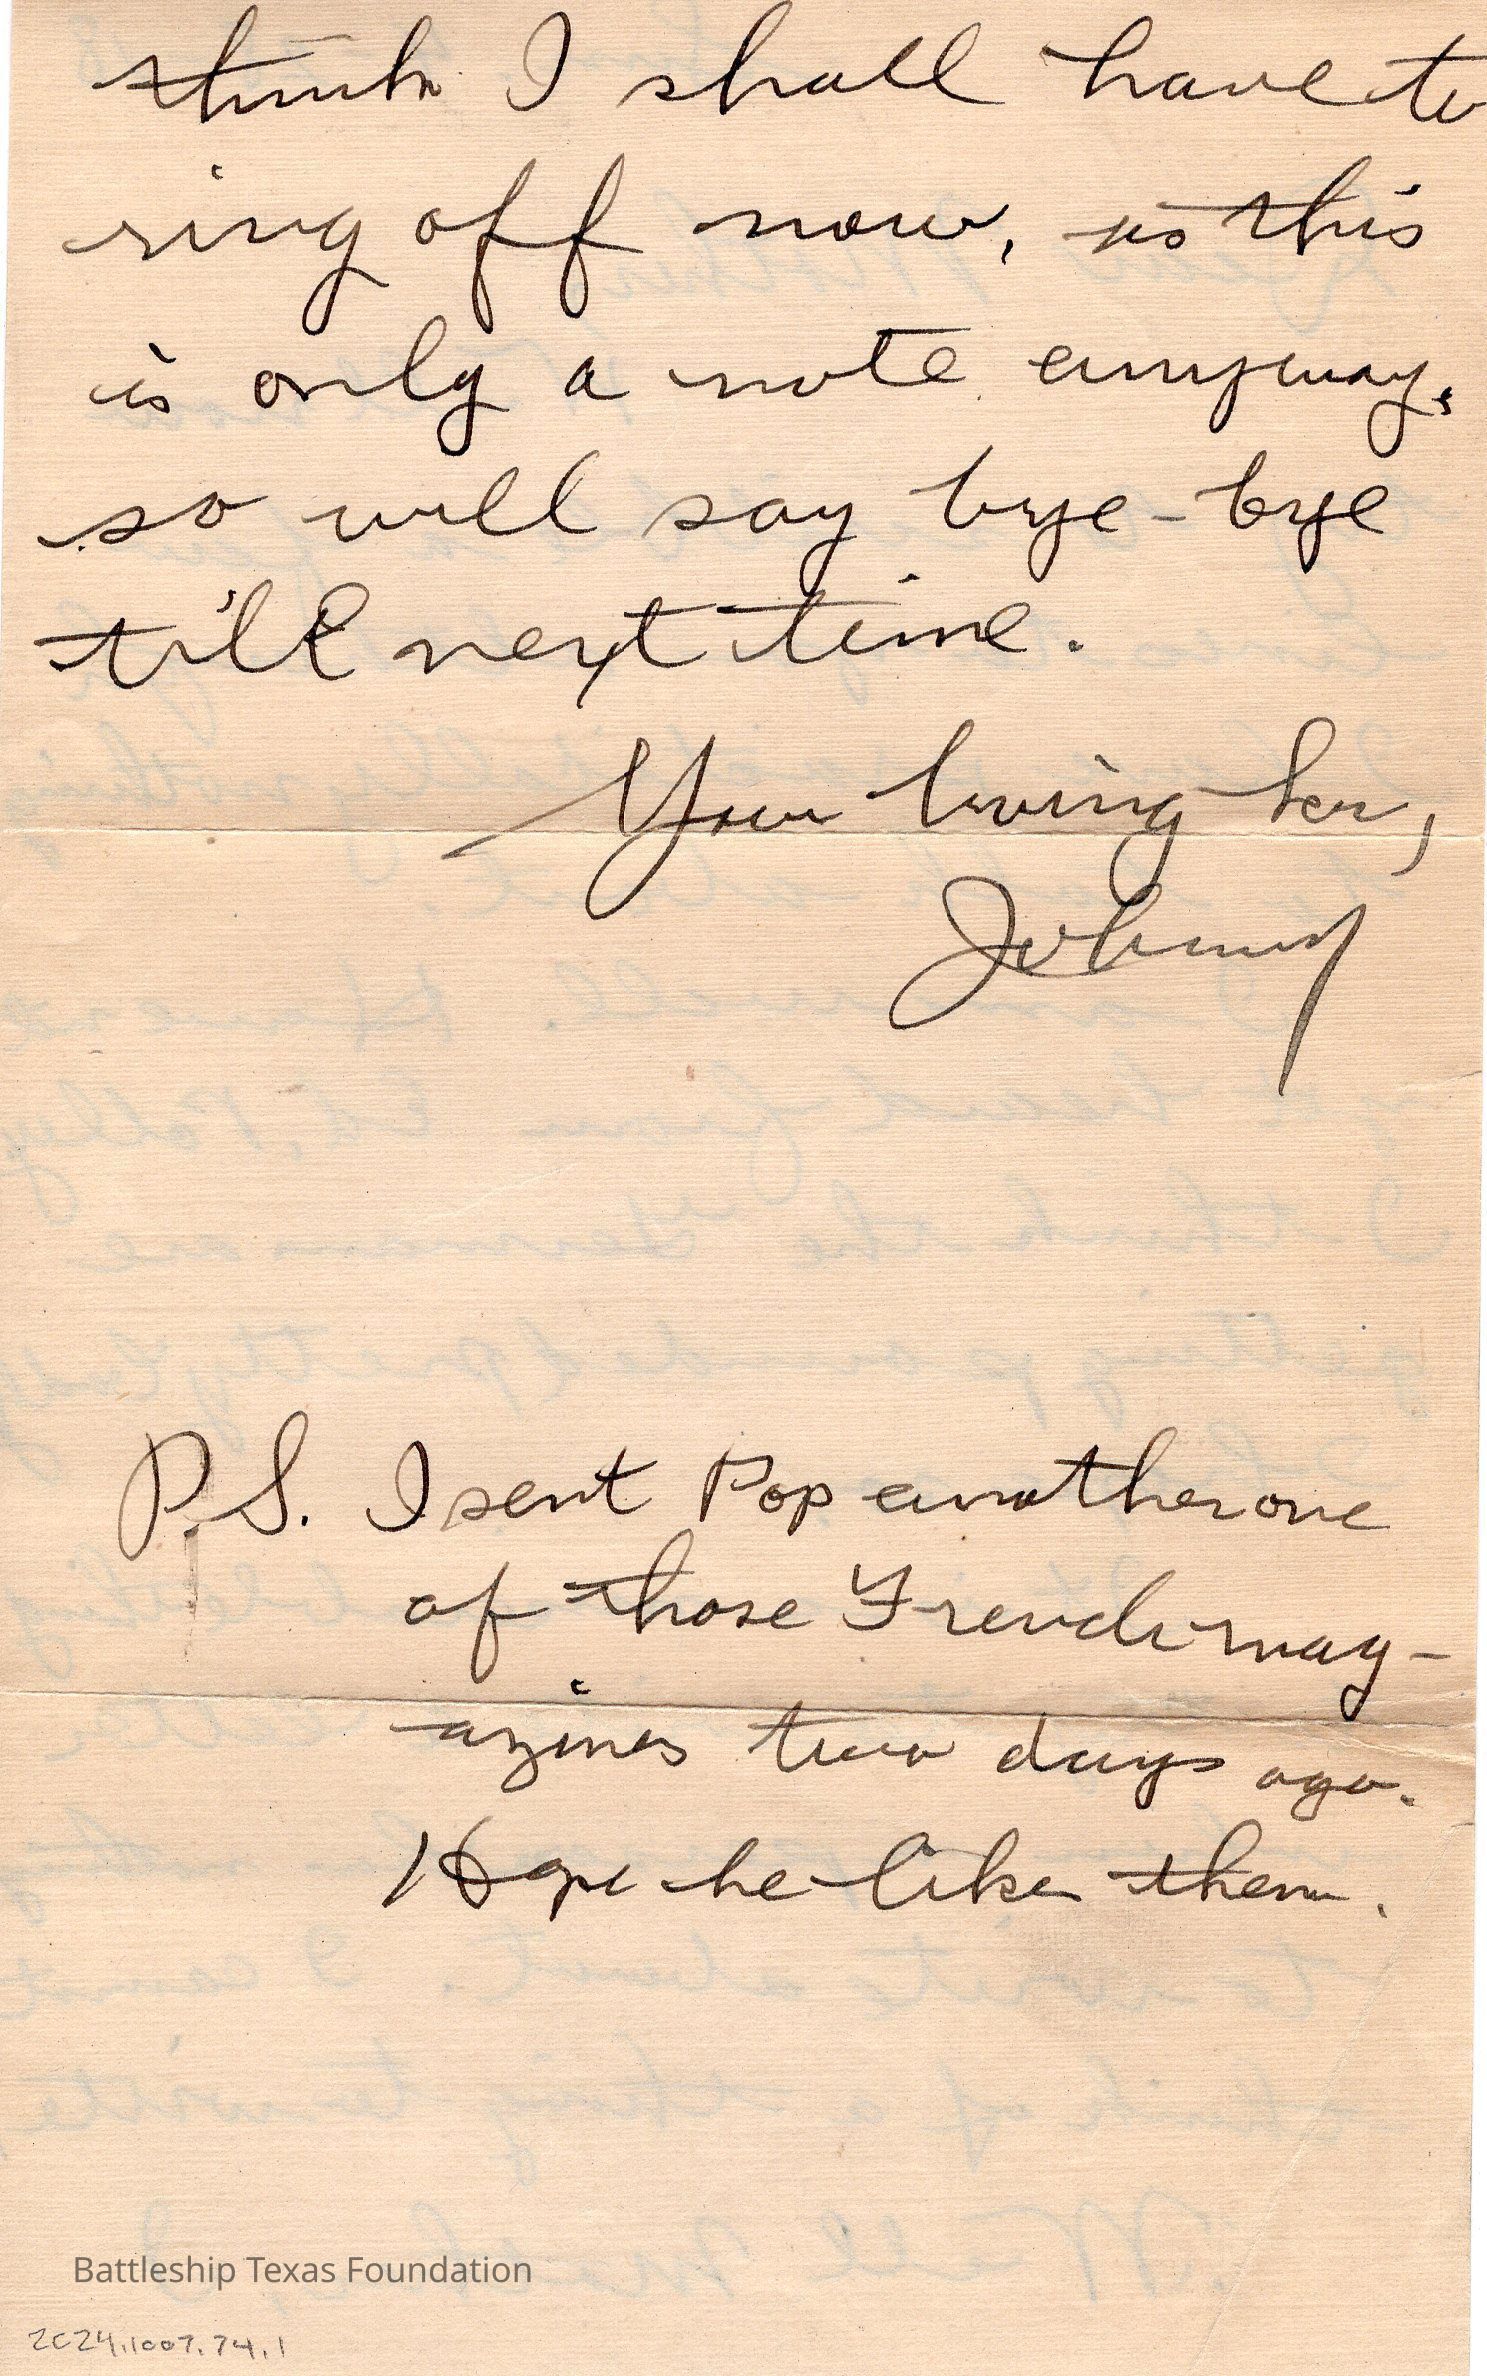 think I shall have to
ring off now, as this
is only a note anyway,
so will say bye-bye
till next time.
Your loving
Johnny
P.S. I sent Pop another one
of those French mag-
azines two days ago.
Hope he likes them.
Battleship Texas Foundation
2024.1007.74.1